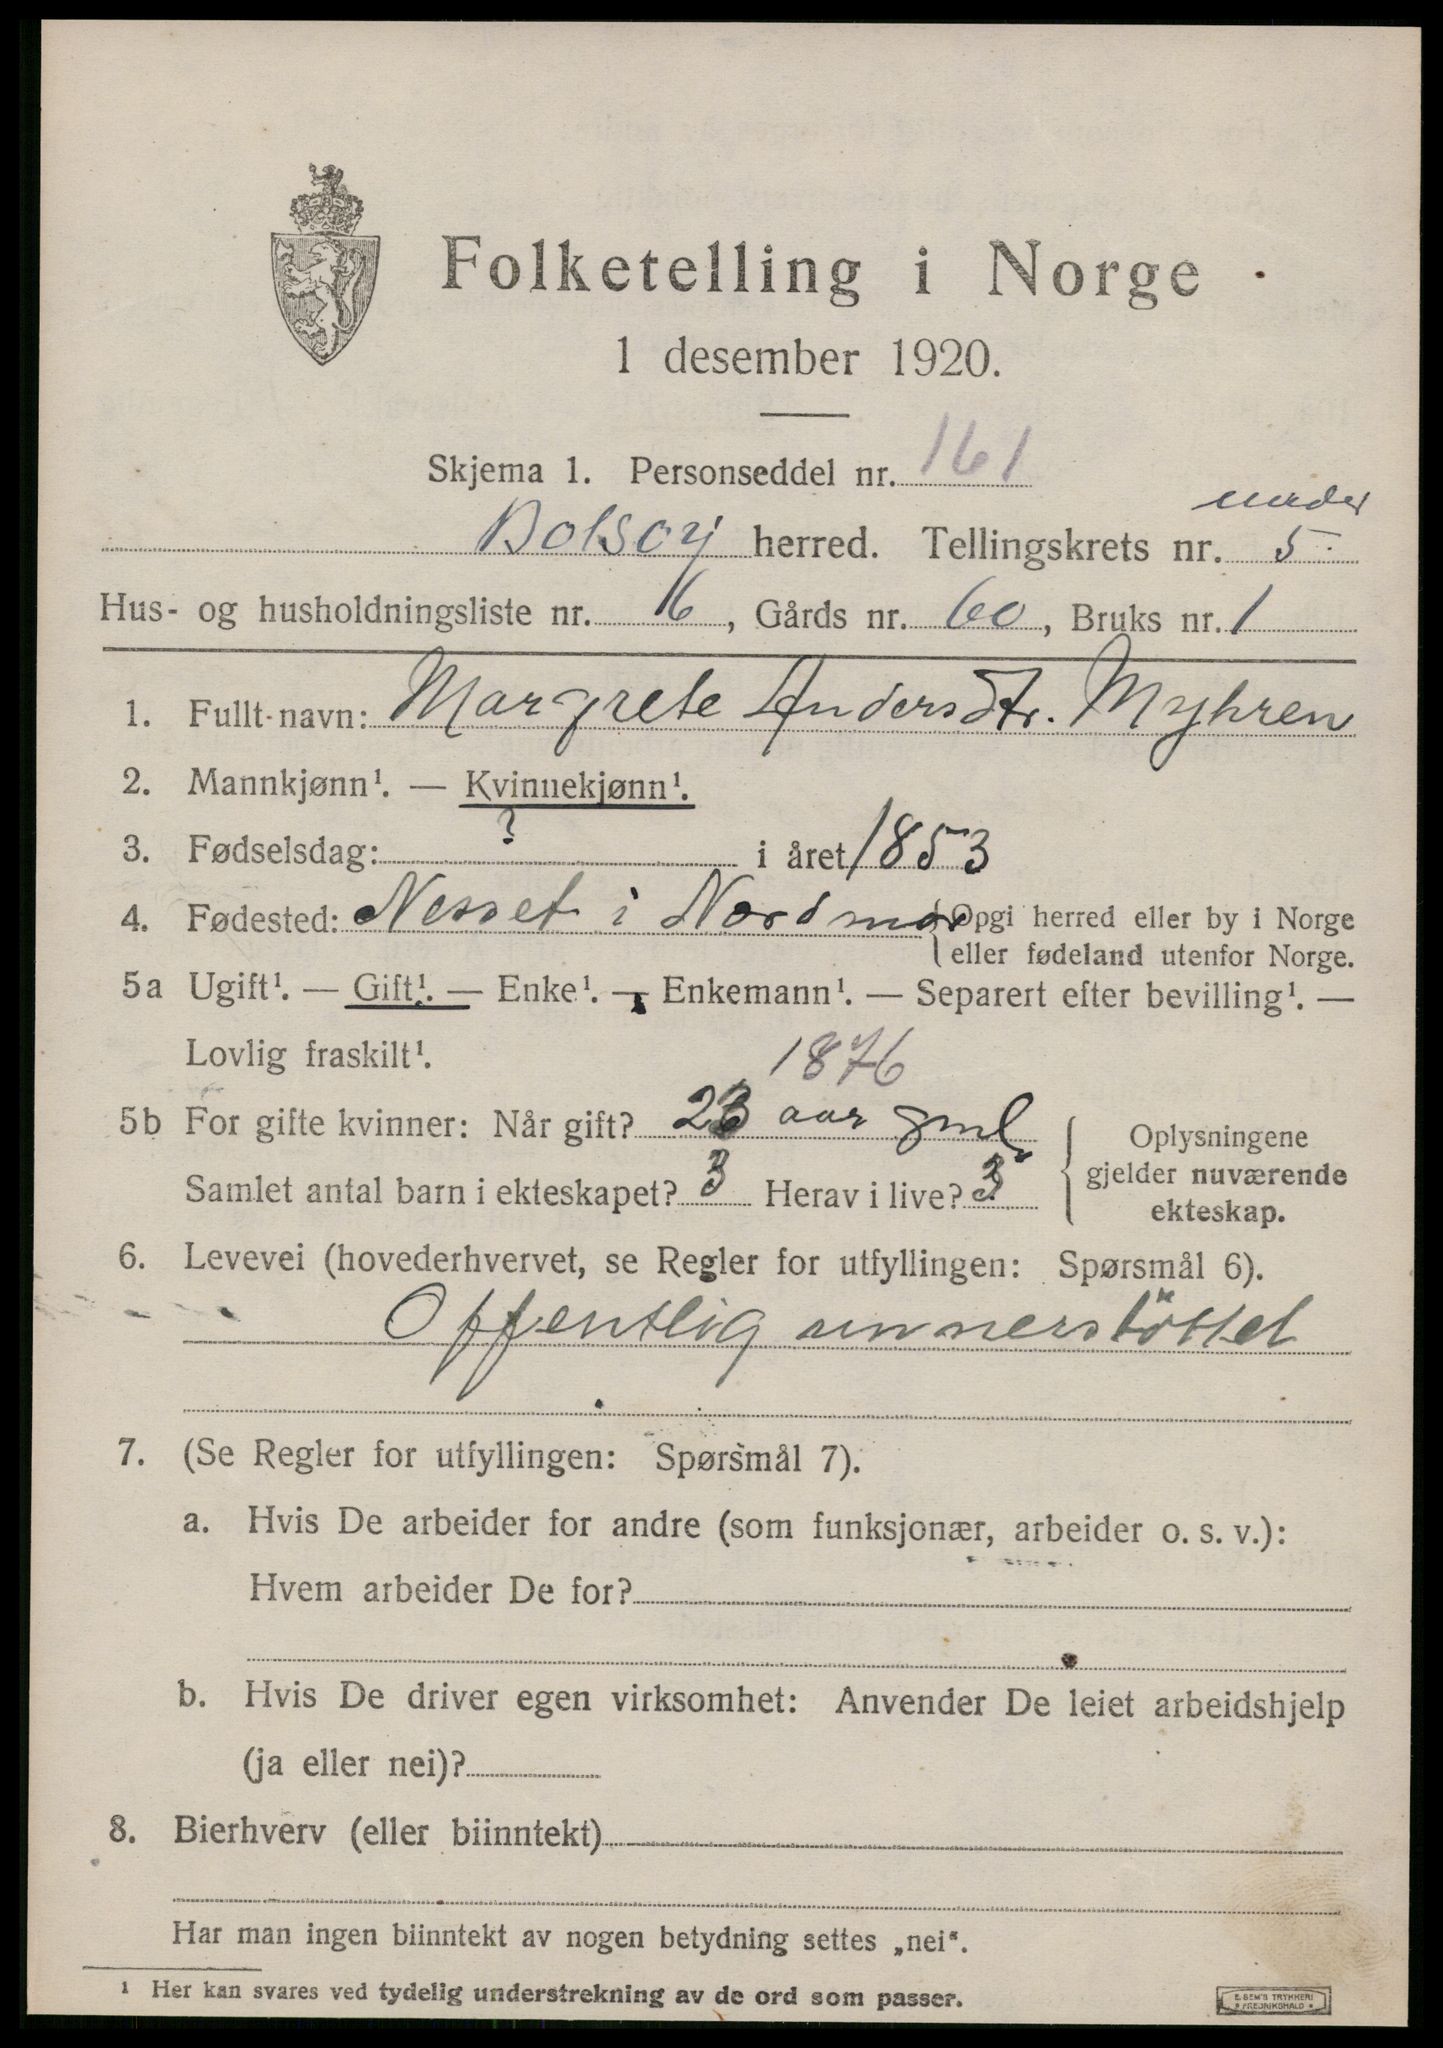 Folketelling i Norge
1 desember 1920.
Skjema 1. Personseddel nr. 161
Bolsøy herred. Tellingskrets nr. 5
Hus- og husholdningsliste nr. 6, Gårds nr. 60, Bruks nr. 1
1. Fullt navn: Margrete Andersdtr. Myhren
2. Mannkjønn¹. — Kvinnekjønn¹.
3. Fødselsdag: ? i året 1853
4. Fødested: Nesset i Nordmør {Opgi herred eller by i Norge
eller fødeland utenfor Norge.
5a Ugift¹. — Gift¹. — Enke¹. — Enkemann¹. — Separert efter bevilling¹. —
Lovlig fraskilt¹.
1876
5b For gifte kvinner: Når gift? 23 aar gml
Samlet antal barn i ekteskapet? 3 Herav i live? 3
Oplysningene
gjelder nuværende
ekteskap.
6. Levevei (hovederhvervet, se Regler for utfyllingen: Spørsmål 6).
Offentlig unnerstöttet
7. (Se Regler for utfyllingen: Spørsmål 7).
a. Hvis De arbeider for andre (som funksjonær, arbeider o. s. v.):
Hvem arbeider De for?
b. Hvis De driver egen virksomhet: Anvender De leiet arbeidshjelp
(ja eller nei)?
8. Bierhverv (eller biinntekt)
Har man ingen biinntekt av nogen betydning settes „nei“.
¹ Her kan svares ved tydelig understrekning av de ord som passer.
E. SEM'S TRYKKERI
FREDRIKSHALD